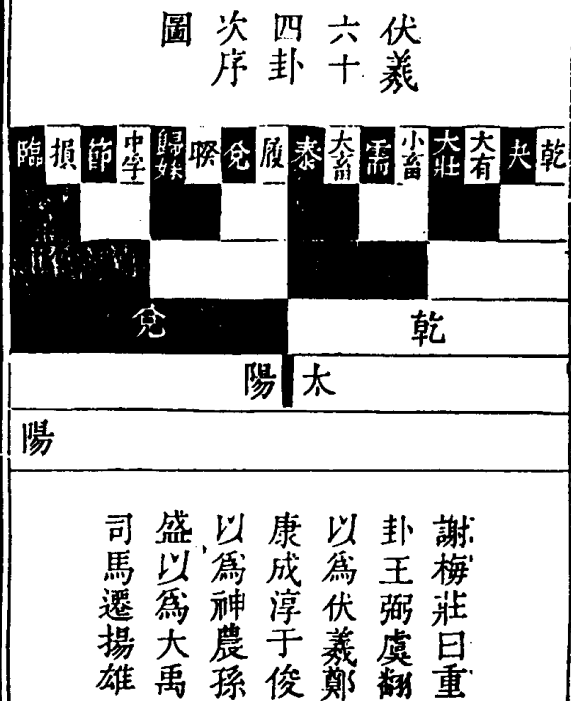 伏羲
六十
四卦
次序
圖
乾
夬
大有
大壯
小畜
需
大畜
泰
履
兌
睽
歸妹
中孚
節
損
臨
乾
兌
太陽
陽
謝梅莊曰重
卦王弼虞翻
以為伏羲鄭
康成淳于俊
以為神農孫
盛以為大禹
司馬遷揚雄